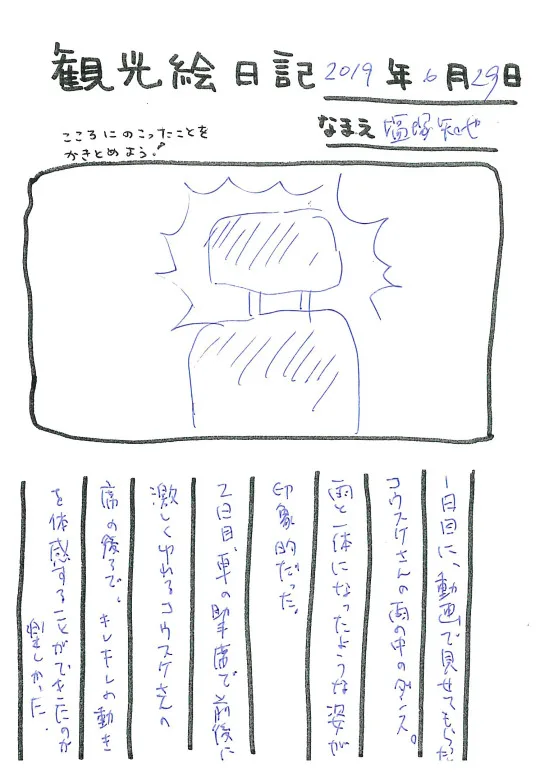 観光絵日記 2019年6月29日
なまえ 塩塚知也
こころにのこったことを
かきとめよう!
1日目に、動画で見せてもらった
コウスケさんの雨の中のダンス。
雨と一体になったような姿が
印象的だった。
2日目、車の助手席で前後に
激しくゆれるコウスケさんの
席の後ろで、キレキレの動き
を体感することができたのが
楽しかった.